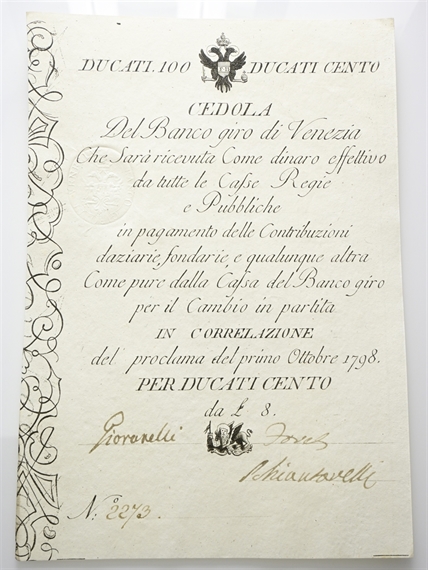 DUCATI.100 DUCATI CENTO
CEDOLA
Del Banco giro di Venezia
Che Sarà ricevuta Come dinaro effettivo
da tutte le Casse Regie
e Pubbliche
in pagamento delle Contribuzioni
daziarie, fondarie e qualunque altra
Come pure dalla Cassa del Banco giro
per il Cambio in partita
IN CORRELAZIONE
del proclama del primo Ottobre 1798.
PER DUCATI CENTO
da £ 8.
Giovanelli
N.º 2273.